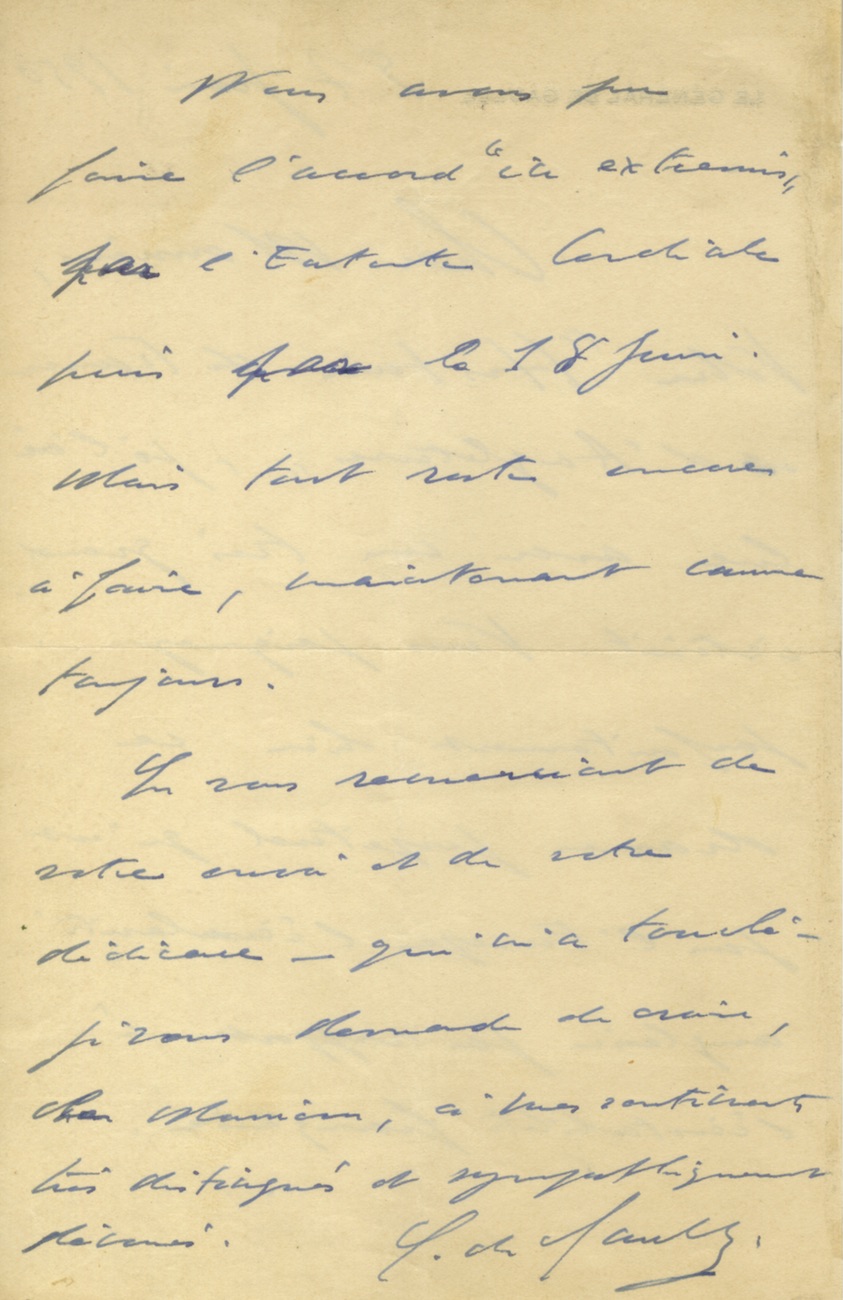 Nous avons pu
faire l'accord "in extremis,,
par l'Entente Cordiale
puis par le 18 Juin.
Mais tout reste encore
à faire, maintenant comme
toujours.
En vous remerciant de
votre envoi et de votre
dédicace — qui m'a touché —
je vous demande de croire,
cher Monsieur, à mes sentiments
très distingués et sympathiquement
dévoués.
C. de Gaulle.